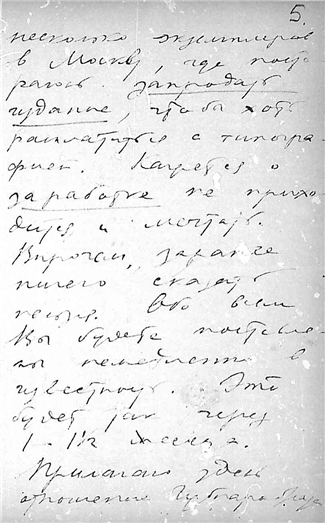 5.
несколько экземпляров
в Москву, где поста
раюсь запродать
издание, чтобы хоть
расплатиться с типогра
фией. Кажется о
заработке не прихо
дится и мечтать.
Впрочем, заранее
ничего сказать
нельзя. Обо всем
Вы будете поставле
ны немедленно в
известность. Это
будет так через
1-1½ месяца.
Прилагаю здесь
отношение